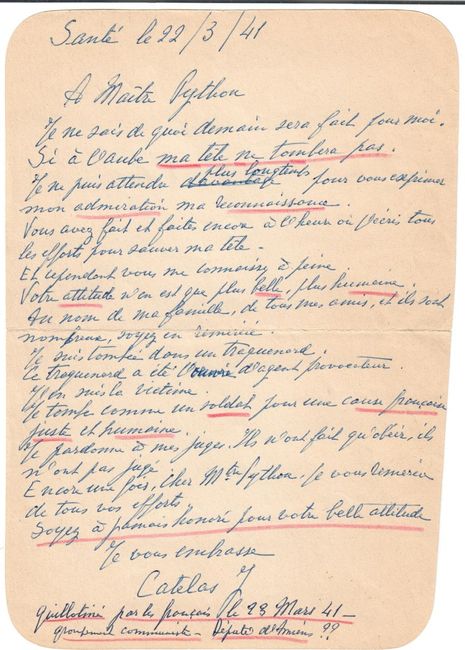 Santé le 22/3/41
A Maître Python
Je ne sais de quoi demain sera fait pour moi.
Si à l'aube ma tête ne tombera pas.
plus longtemps
Je ne puis attendre davantage pour vous exprimer
mon admiration ma reconnaissance.
Vous avez fait et faites encore à l'heure où j'écris tous
les efforts pour sauver ma tête -
Et cependant vous me connaissez à peine
Votre attitude n'en est que plus belle, plus humaine.
Au nom de ma famille, de tous mes amis, et ils sont
nombreux, soyez en remercié.
Je suis tombé dans un traquenard.
Ce traquenard a été l'œuvre d'agent provocateur.
J'en suis la victime.
Je tombe comme un soldat pour une cause française
juste et humaine.
Je pardonne à mes juges. Ils n'ont fait qu'obéir, ils
n'ont pas jugé.
Encore une fois, cher Mtre Python, je vous remercie
de tous vos efforts
Soyez à jamais honoré pour votre belle attitude
Je vous embrasse
Catelas J
guillotiné par les français le 23 Mars 41 -
groupement communiste - Député d'Amiens ??